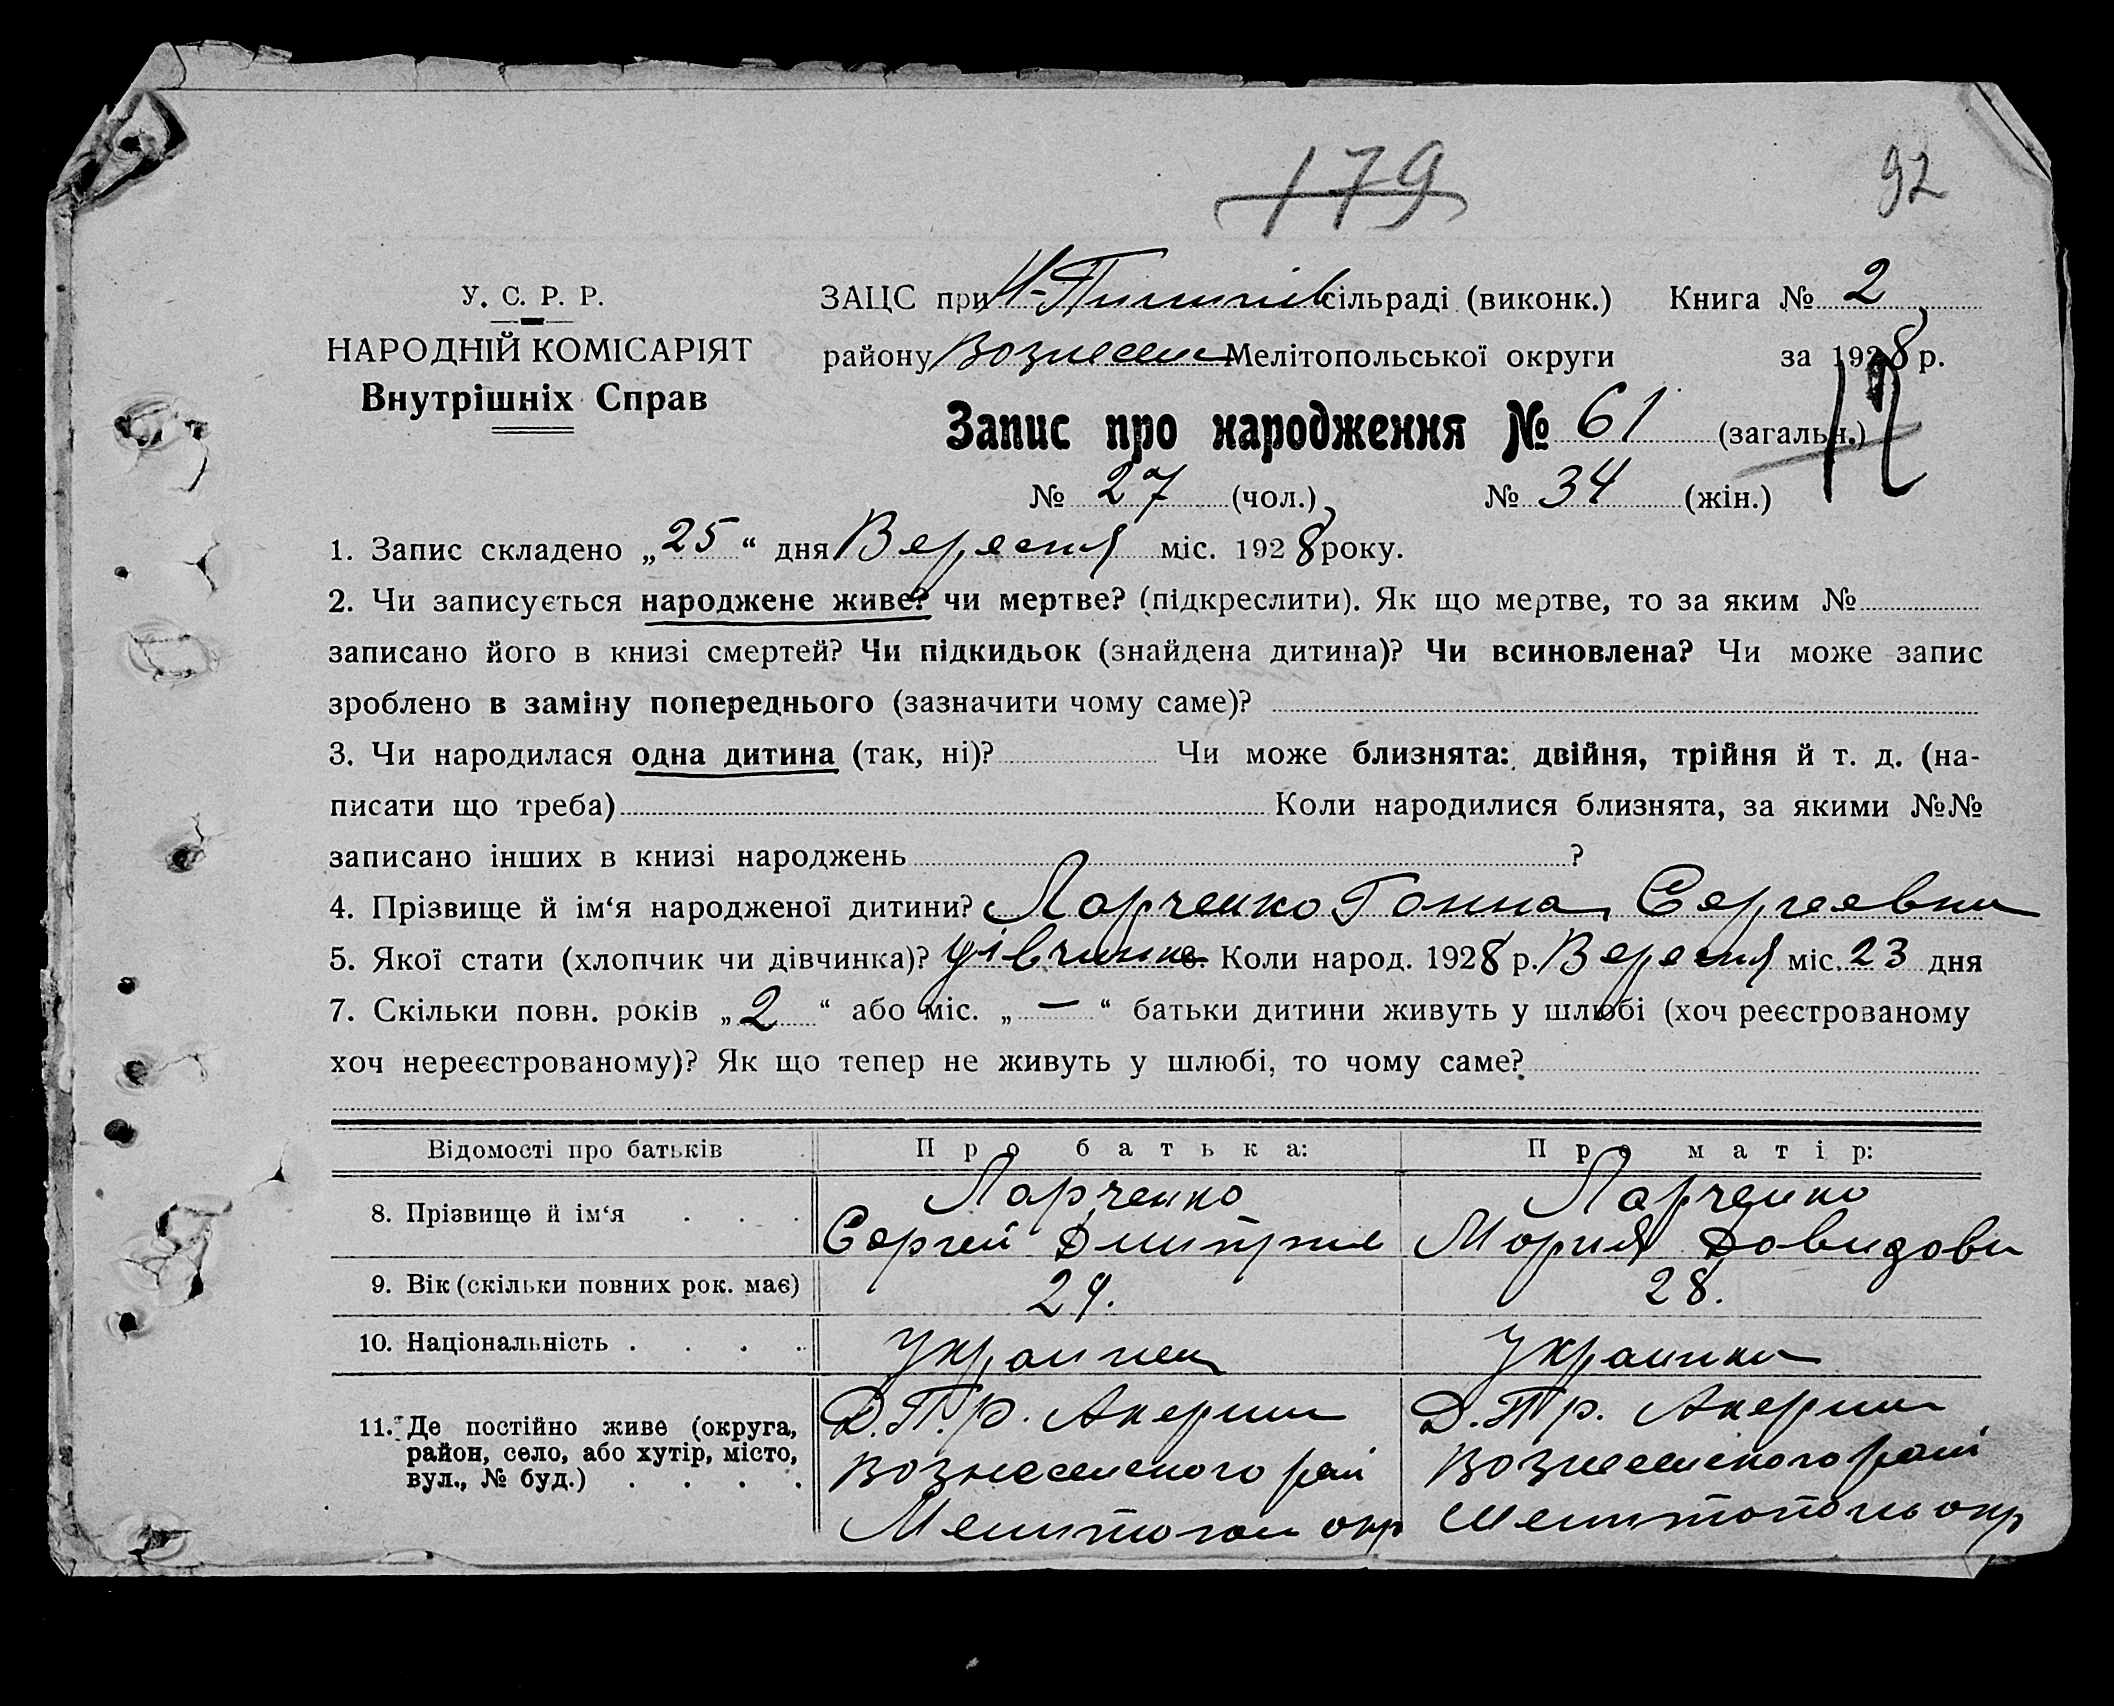 179
92
У. С. Р. Р.
НАРОДНІЙ КОМІСАРІЯТ
Внутрішніх Справ
ЗАЦС при Н-Пилипків сільраді (виконк.) Книга № 2
району Вознесен Мелітопольської округи за 1928 р.
Запис про народження № 61 (загальн.)
№ 27 (чол.) № 34 (жін.)
1. Запис складено „25“ дня Вересня міс. 1928 року.
2. Чи записується народжене живе? чи мертве? (підкреслити). Як що мертве, то за яким №
записано його в книзі смертей? Чи підкидьок (знайдена дитина)? Чи всиновлена? Чи може запис
зроблено в заміну попереднього (зазначити чому саме)?
3. Чи народилася одна дитина (так, ні)? Чи може близнята: двійня, трійня й т. д. (на-
писати що треба) Коли народилися близнята, за якими №№
записано інших в книзі народжень ?
4. Прізвище й ім‘я народженої дитини? Ларченко Ганна Сергеевна
5. Якої стати (хлопчик чи дівчинка)? дівчинка. Коли народ. 1928 р. Вересня міс. 23 дня
7. Скільки повн. років „2“ або міс. „—“ батьки дитини живуть у шлюбі (хоч реєстрованому
хоч нереєстрованому)? Як що тепер не живуть у шлюбі, то чому саме?
Відомості про батьків Про батька: Про матір:
8. Прізвище й ім‘я Ларченко Сергей Дмитрие Ларченко Мария Давидовн
9. Вік (скільки повних рок. має) 29. 28.
10. Національність Украинец Украинка
11. Де постійно живе (округа, район, село, або хутір, місто, вул., № буд.) Д.П.р. Акерман Вознесенского рай Мелитопол окр Д.Пр. Акерман Вознесенского рай Мелитополь окр